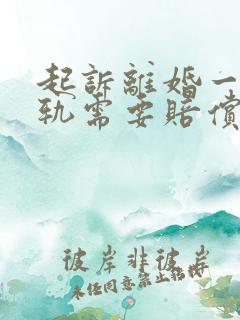 起訴離婚一
軌需要賠償
彼岸非彼岸
未经同意禁止转载